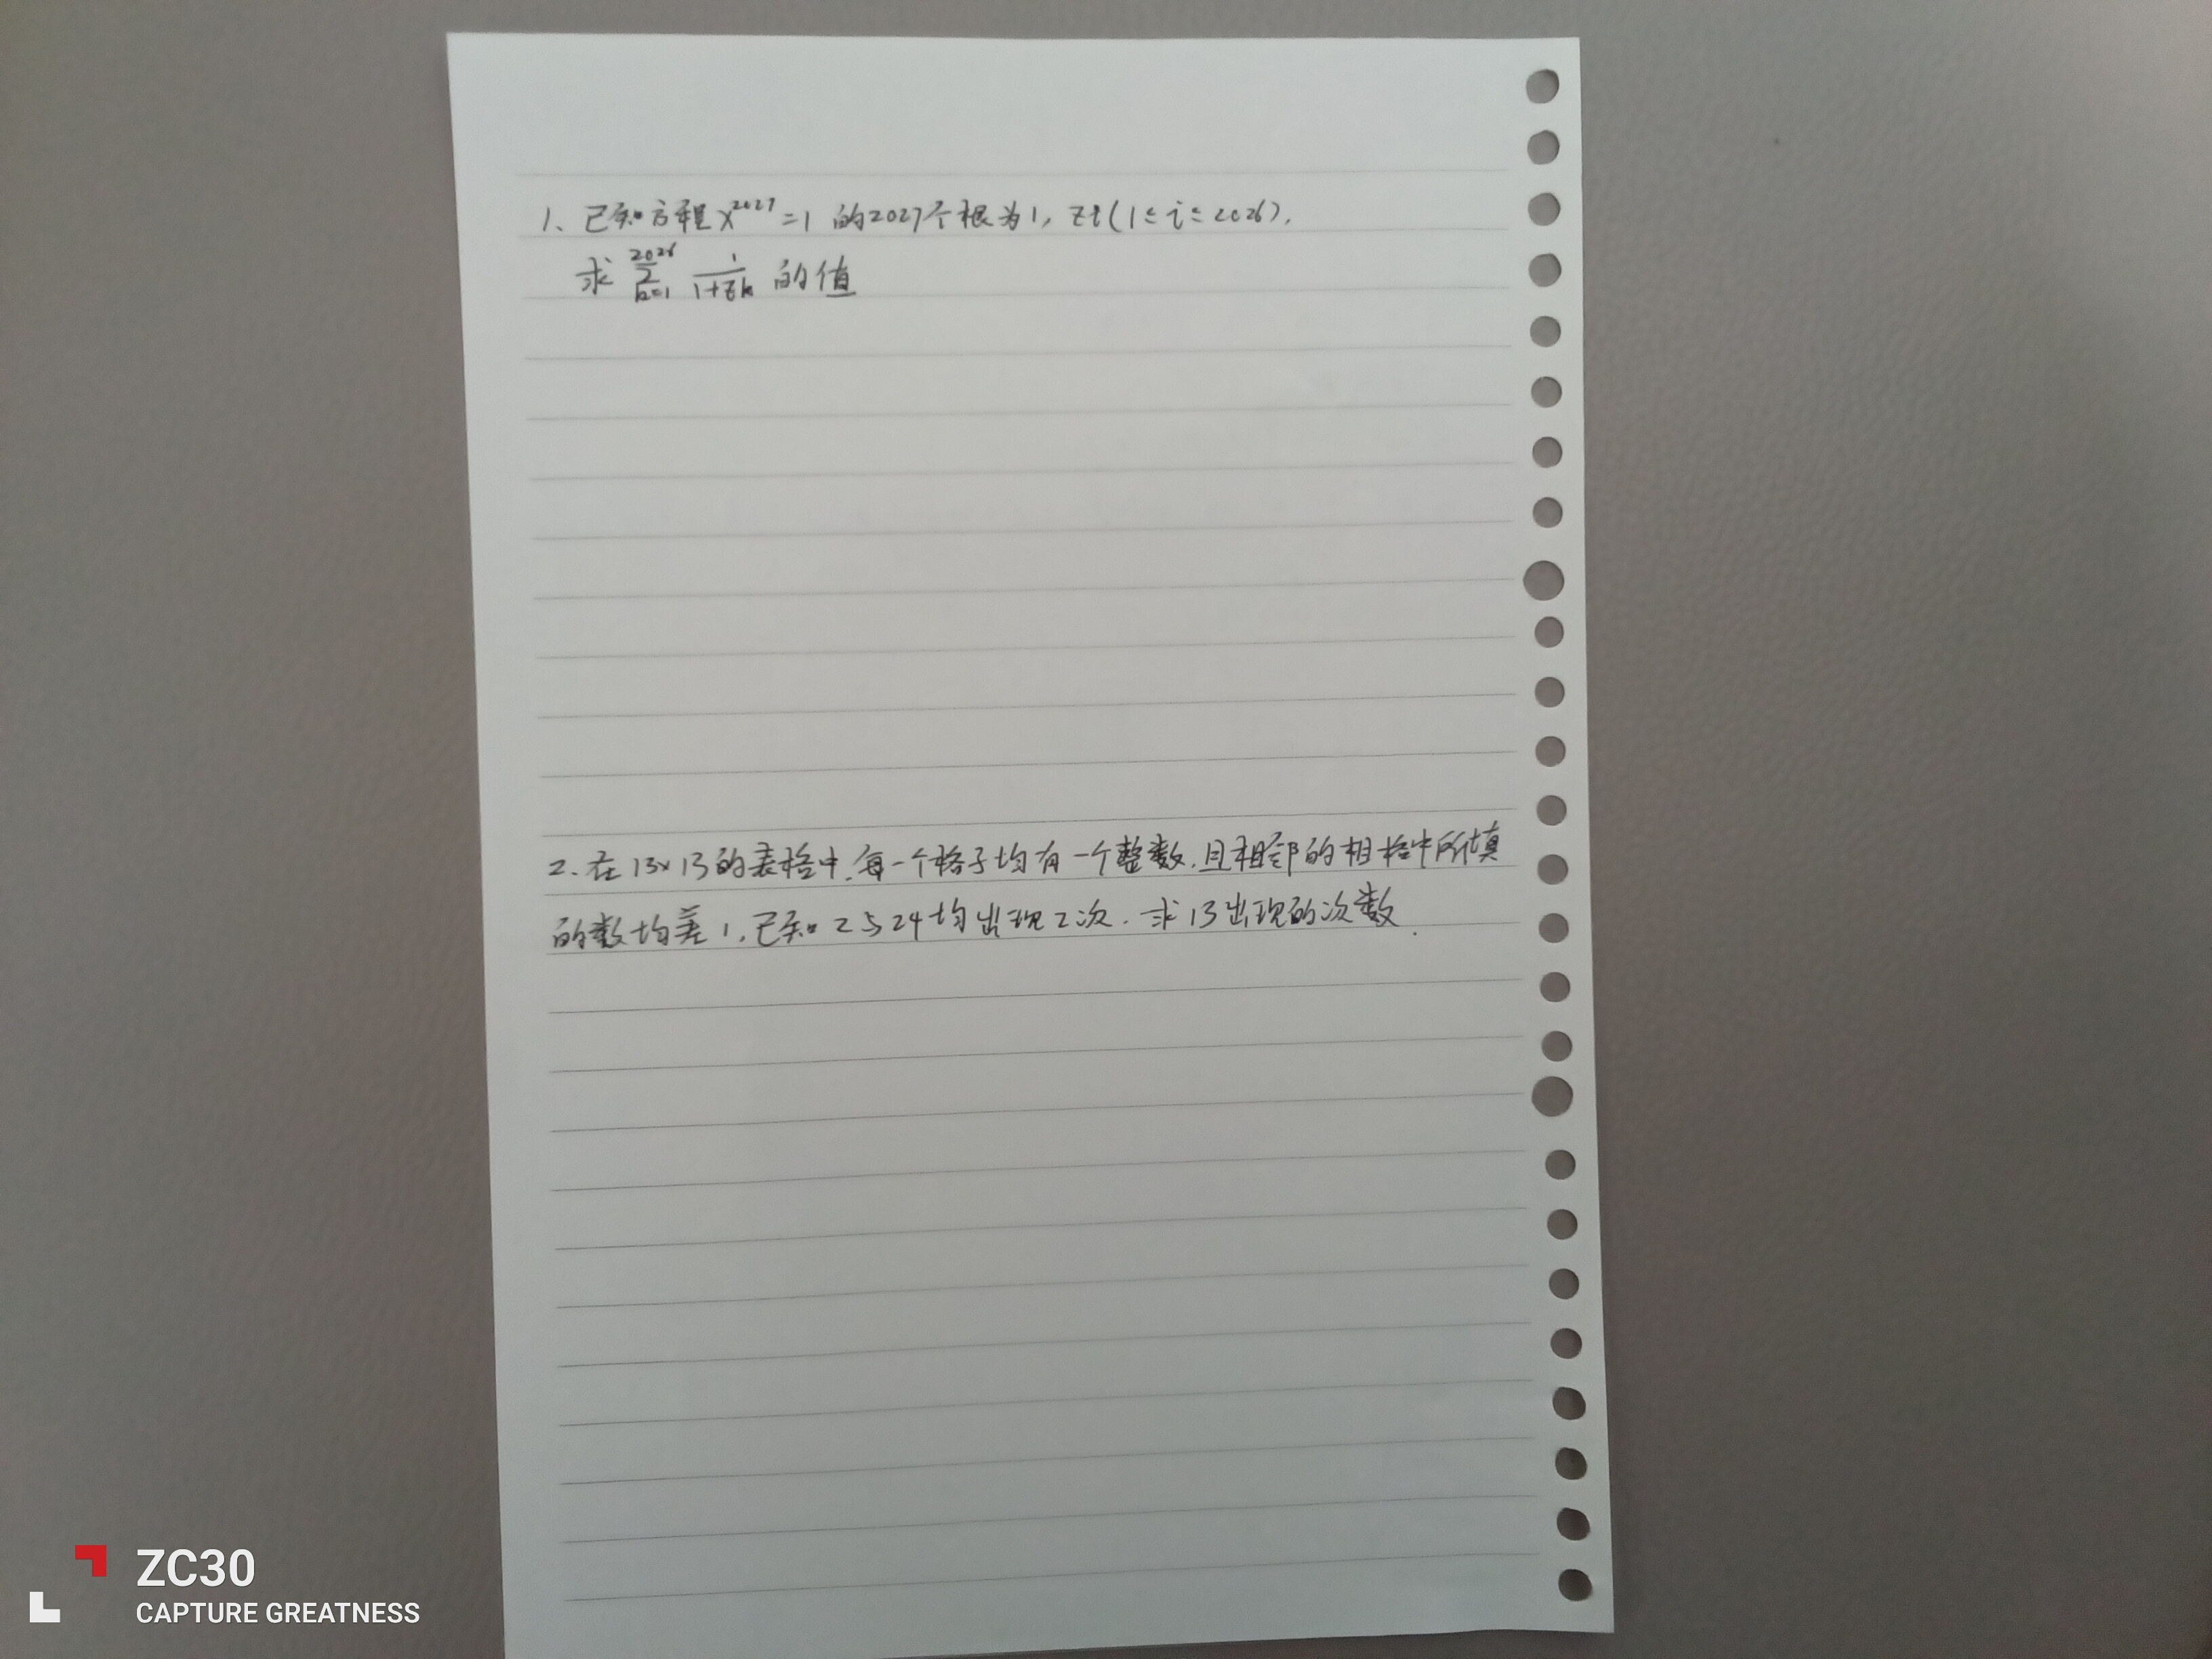 1、已知方程x^2027=1 的2027个根为1, zi(1≤i≤2026).
求 \sum_{k=1}^{2026} \frac{1}{1+zk} 的值
2、在13×13的表格中,每一个格子均有一个整数.且相邻的相格中所填
的数均差1.已知2与24均出现2次.求13出现的次数.
ZC30
CAPTURE GREATNESS